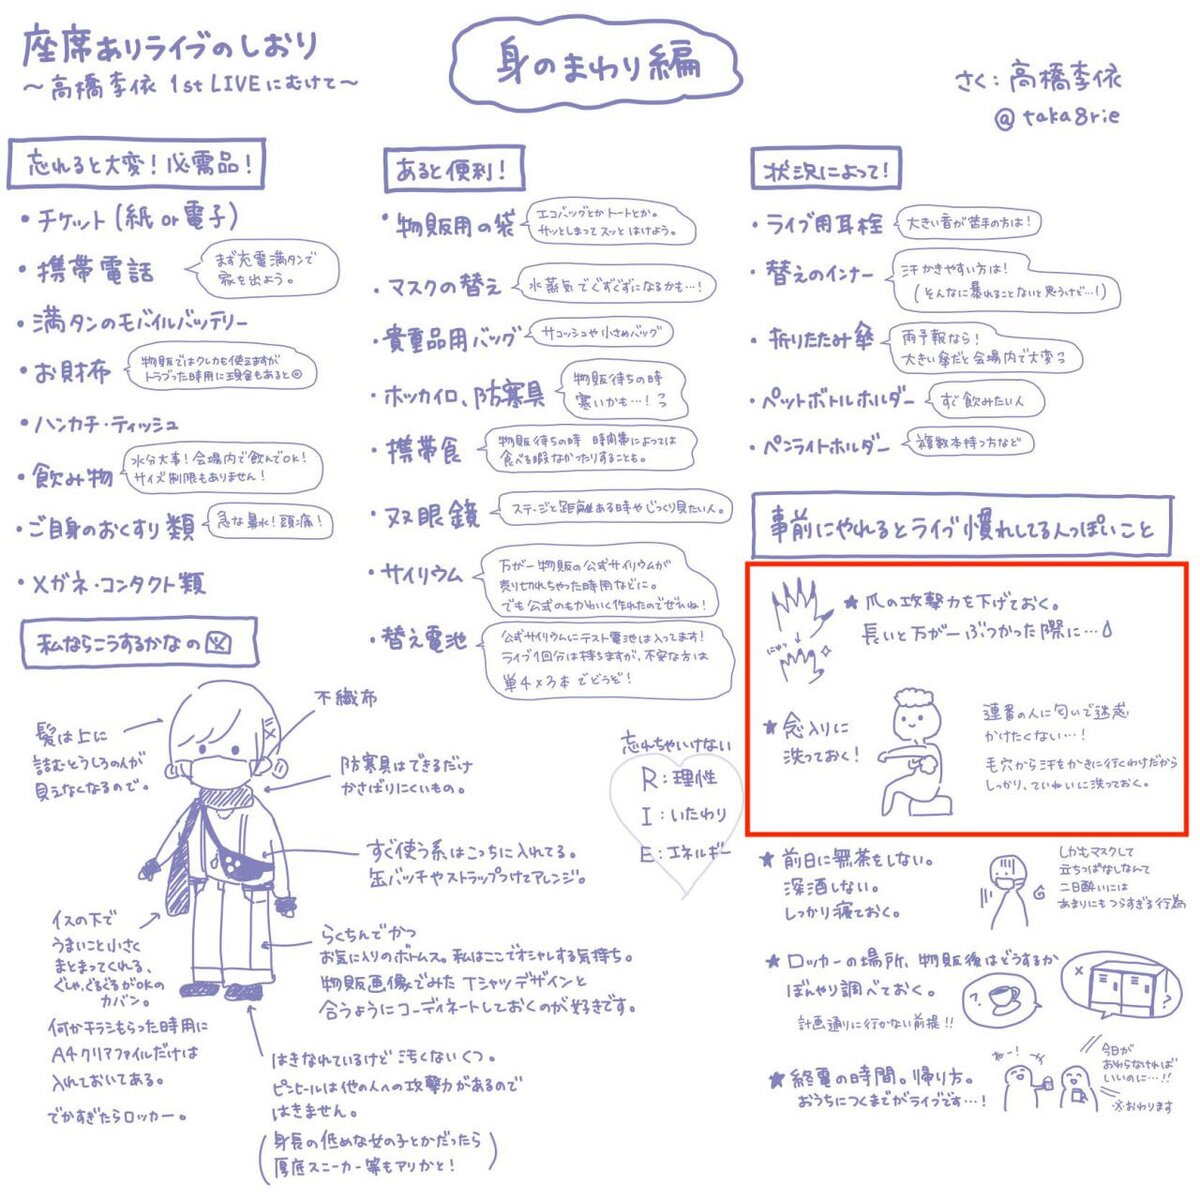 座席ありライブのしおり
～高橋李依 1st LIVEにむけて～
身のまわり編
さく：高橋李依
@taka8rie
忘れると大変！必需品！
・チケット(紙or電子)
・携帯電話
まず充電満タンで
家を出よう。
・満タンのモバイルバッテリー
・お財布
物販ではクレカも使えますが
トラブった時用に現金もあると◎
・ハンカチ・ティッシュ
・飲み物
水分大事！会場内で飲んでOK！
サイズ制限もありません！
・ご自身のおくすり類
急な鼻水！頭痛！
・メガネ・コンタクト類
あると便利！
・物販用の袋
エコバッグとかトートとか。
サッとしまってスッとはけよう。
・マスクの替え
水蒸気でぐずぐずになるかも…！
・貴重品用バッグ
サコッシュや小さめバッグ
・ホッカイロ、防寒具
物販待ちの時
寒いかも…！
・携帯食
物販待ちの時 時間帯によっては
食べる暇なかったりすることも。
・双眼鏡
ステージと距離ある時やじっくり見たい人。
・サイリウム
万が一物販の公式サイリウムが
売り切れちゃった時用などに。
でも公式のもかわいく作れたのでぜひね！
・替え電池
公式サイリウムにテスト電池は入ってます！
ライブ1回分は持ちますが、不安な方は
単4×3本でどうぞ！
状況によって！
・ライブ用耳栓
大きい音が苦手の方は！
・替えのインナー
汗かきやすい方は！
(そんなに暴れることないと思うけど…！)
・折りたたみ傘
雨予報なら！
大きい傘だと会場内で大変っ
・ペットボトルホルダー
すぐ飲みたい人
・ペンライトホルダー
複数本持つ方など
事前にやれるとライブ慣れしてる人っぽいこと
★爪の攻撃力を下げておく。
長いと万が一ぶつかった際に…
にゅっ
★念入りに
洗っておく！
連番の人に匂いで迷惑
かけたくない…！
毛穴から汗をかきに行くわけだから
しっかり、ていねいに洗っておく。
★前日に無茶をしない。
深酒しない。
しっかり寝ておく。
しかもマスクして
立ちっぱなしなんて
二日酔いには
あまりにもつらすぎる行為
★ロッカーの場所、物販後はどうするか
ぼんやり調べておく。
計画通りに行かない前提!!
★終電の時間。帰り方。
おうちにつくまでがライブです…！
ねー！
今日が
おわらなければ
いいのに…!!
※おわります
私ならこうするかなの図
不織布
髪は上に
詰むとうしろの人が
見えなくなるので。
防寒具はできるだけ
かさばりにくいもの。
すぐ使う系はこっちに入れてる。
缶バッチやストラップつけてアレンジ。
イスの下で
うまいこと小さく
まとまってくれる、
ぐしゃ、ぐるぐるがOKの
カバン。
何かチラシもらった時用に
A4クリアファイルだけは
入れておいてある。
でかすぎたらロッカー。
らくちんでかつ
お気に入りのボトムス。私はここでオシャレする気持ち。
物販画像でみたTシャツデザインと
合うようにコーディネートしておくのが好きです。
はきなれているけど汚くないくつ。
ピンヒールは他の人への攻撃力があるので
はきません。
(身長の低めな女の子とかだったら
厚底スニーカー等もアリかと！)
忘れちゃいけない
R：理性
I：いたわり
E：エネルギー